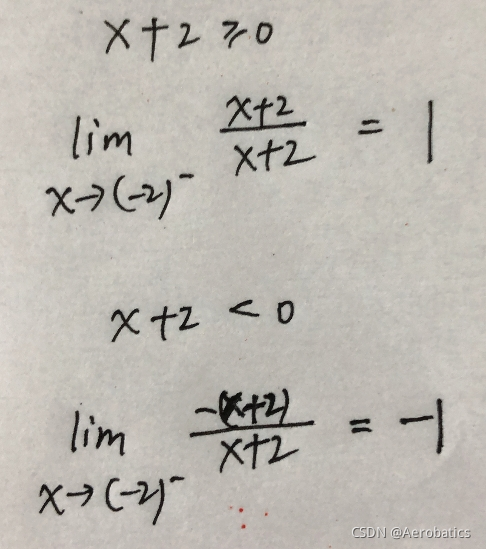 x+2 ≥0
lim x→(-2)⁻ (x+2)/(x+2) = 1
x+2 < 0
lim x→(-2)⁻ -(x+2)/(x+2) = -1
CSDN @Aerobatics